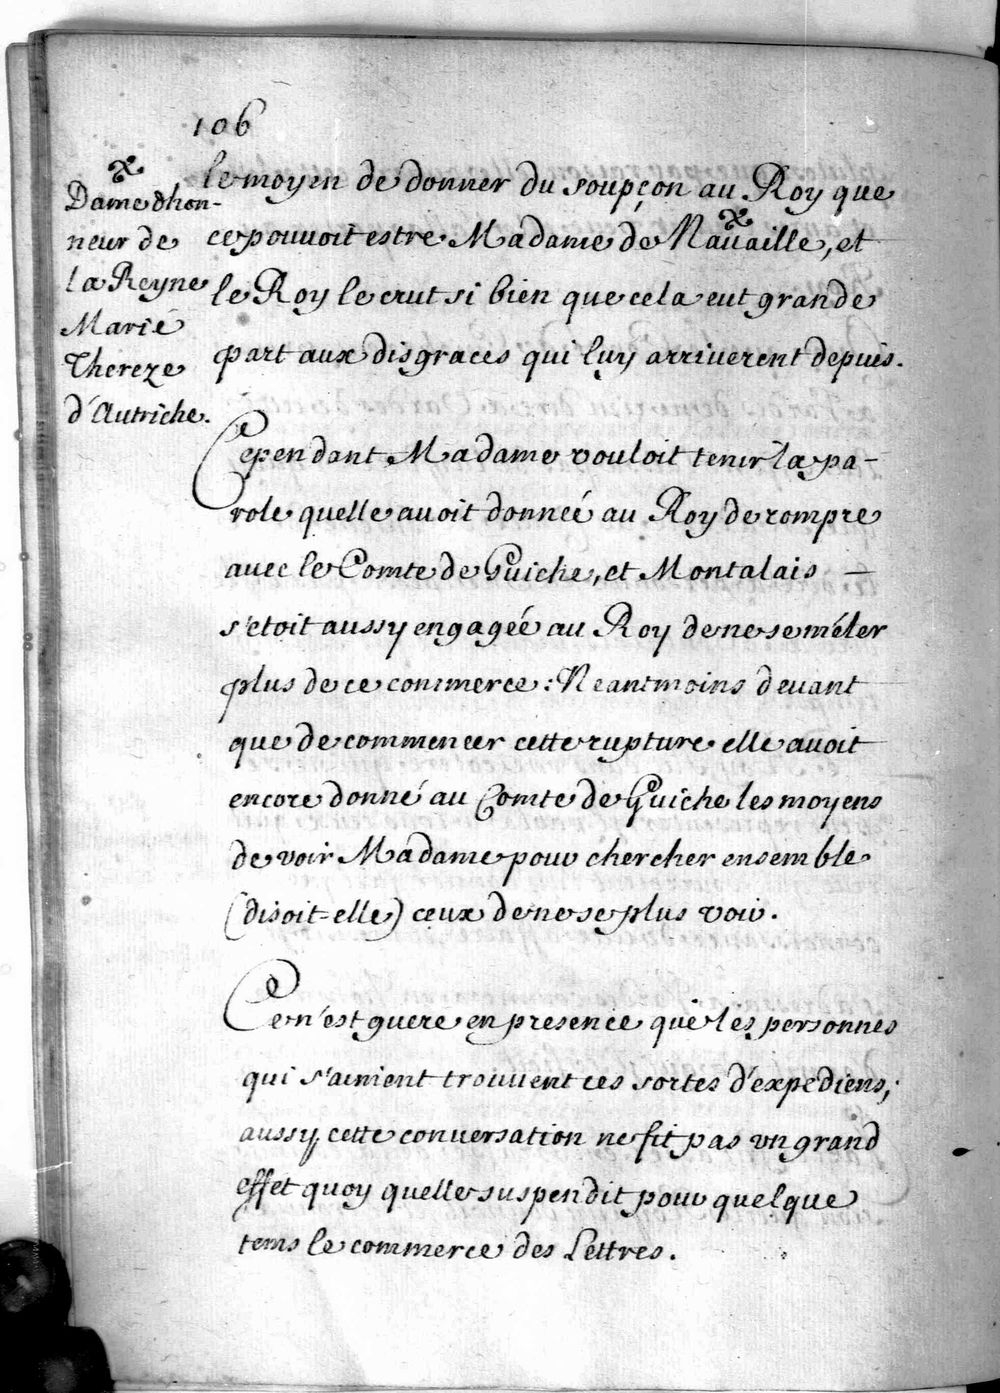 106
le moyen de donner du soupçon au Roy que
ce pouvoit estre Madame de Navaille, et
le Roy le crut si bien que cela eut grande
part aux disgraces qui luy arriverent depuis.
Dame dhon-
neur de
la Reyne
Marie
Thereze
d'Autriche.
Cependant Madame vouloit tenir la pa-
role quelle avoit donneé au Roy de rompre
avec le Comte de Guiche, et Montalais
s'etoit aussy engageé au Roy de ne se méler
plus de ce commerce: Neantmoins devant
que de commencer cette rupture elle avoit
encore donné au Comte de Guiche les moyens
de voir Madame pour chercher ensemble
(disoit-elle) ceux de ne se plus voir.
Ce n'est guere en presence que les personnes
qui s'aiment trouvent ces sortes d'expediens;
aussy cette conversation ne fit pas un grand
effet quoy quelle suspendit pour quelque
tems le commerce des Lettres.